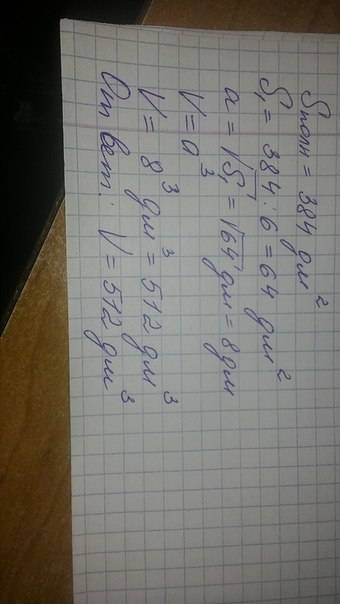 Sполн = 384 дм²
S₁ = 384 : 6 = 64 дм²
a = √S₁ = √64 дм = 8 дм
V = a³
V = 8³ дм³ = 512 дм³
Ответ: V = 512 дм³